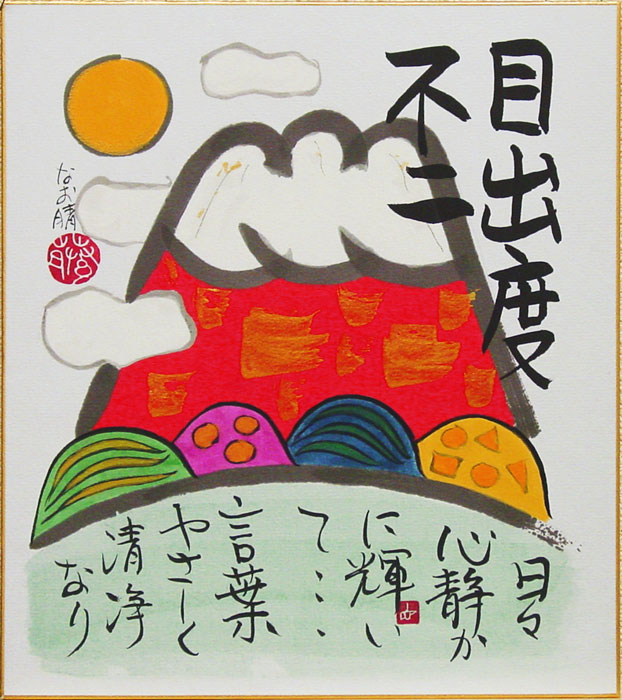 目出度
不二
なお晴
日々
心静か
に輝い
て・・・
言葉
やさしく
清浄
なり